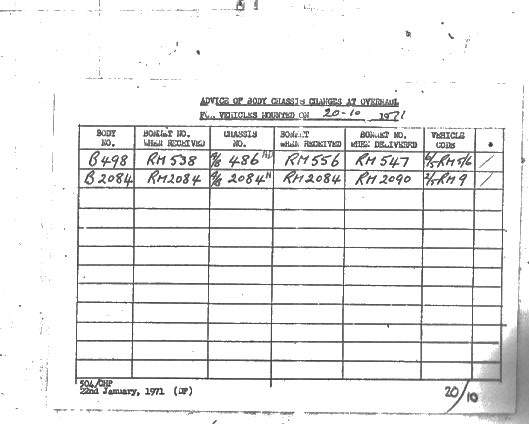 ADVICE OF BODY CHASSIS CHANGES AT OVERHAUL
VEHICLES MOUNTED ON 20-10 1971
BODY NO. BONNET NO. WHEN RECEIVED CHASSIS NO. BONNET WHEN RECEIVED BONNET NO. WHEN DELIVERED VEHICLE CODE *
B498 RM538 486 RM556 RM547 /
B2084 RM2084 2084 RM2084 RM2090 RM9 /
504/OHP
22nd January, 1971 (DF)
20/10